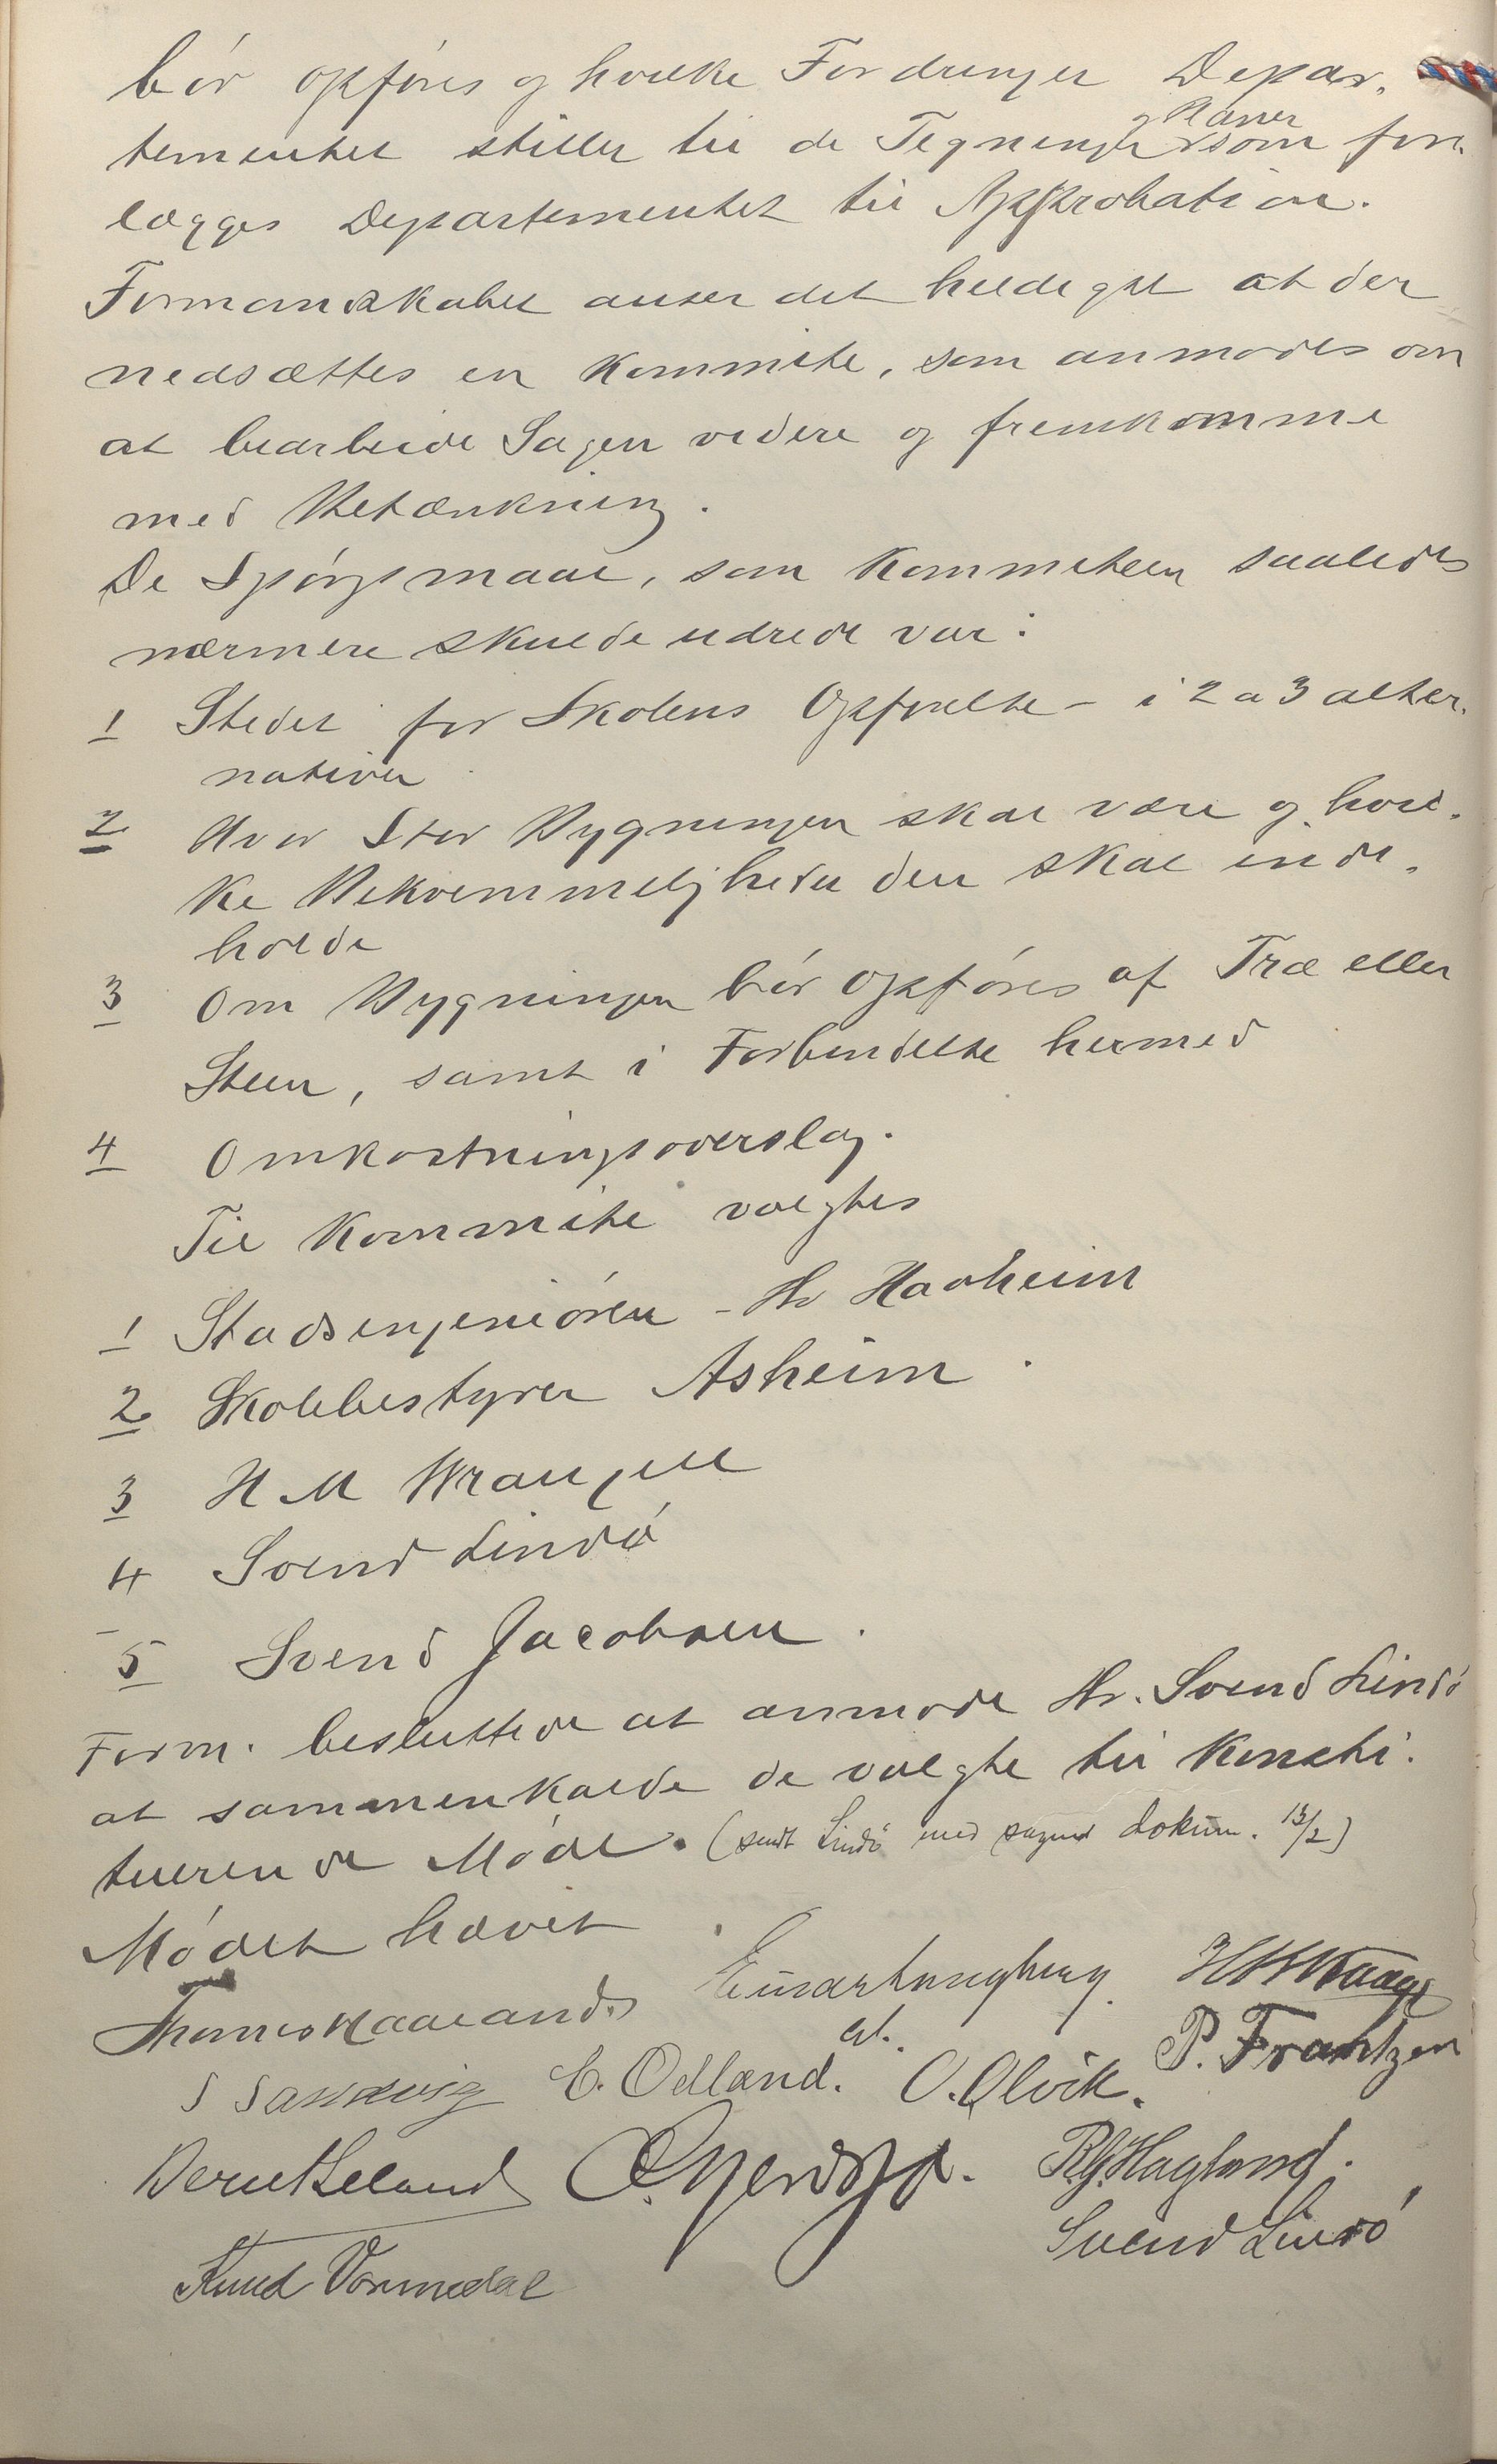 bör opføres og hvilke Fordringer Depar-
tementet stiller til de Tegninger og Planer som fore-
lægges Departementet til Approbation.
Formandskabet anser det heldigst at der
nedsættes en Kommite, som anmodes om
at bearbeide Sagen videre og fremkomme
med Betænkning.
De Spørgsmaal, som Kommiteen saaledes
nærmere skulde udrede var:
1 Stedet for Skolens Opførelse - i 2 a 3 alter-
nativer
2 Hvor Stor Bygningen skal være og hvil-
ke Bekvemmeligheder den skal inde-
holde
3 Om Bygningen bør opføres af Træ eller
Steen, samt i Forbindelse hermed
4 Omkostningsoverslag.
Til Kommite valgtes
1 Stadsingeniøren - Hr Havheim
2 Skolebestyrer Asheim.
3 H M Wrangell
4 Svend Lindø
5 Svend Jacobsen.
Form. besluttede at anmode Hr. Svend Lindø
at sammenkalde de valgte til Konsti-
tuerende Møde. (sendt Lindø med sagens dokum. 13/2)
Mødet hævet.
Thomas Haaland Einar Langberg H K Waage
S Sandvig E. Odland. O. Olvik. P. Frantzen
Bernt Leland Rg. Hagland.
Knud Vormedal Svend Lindø